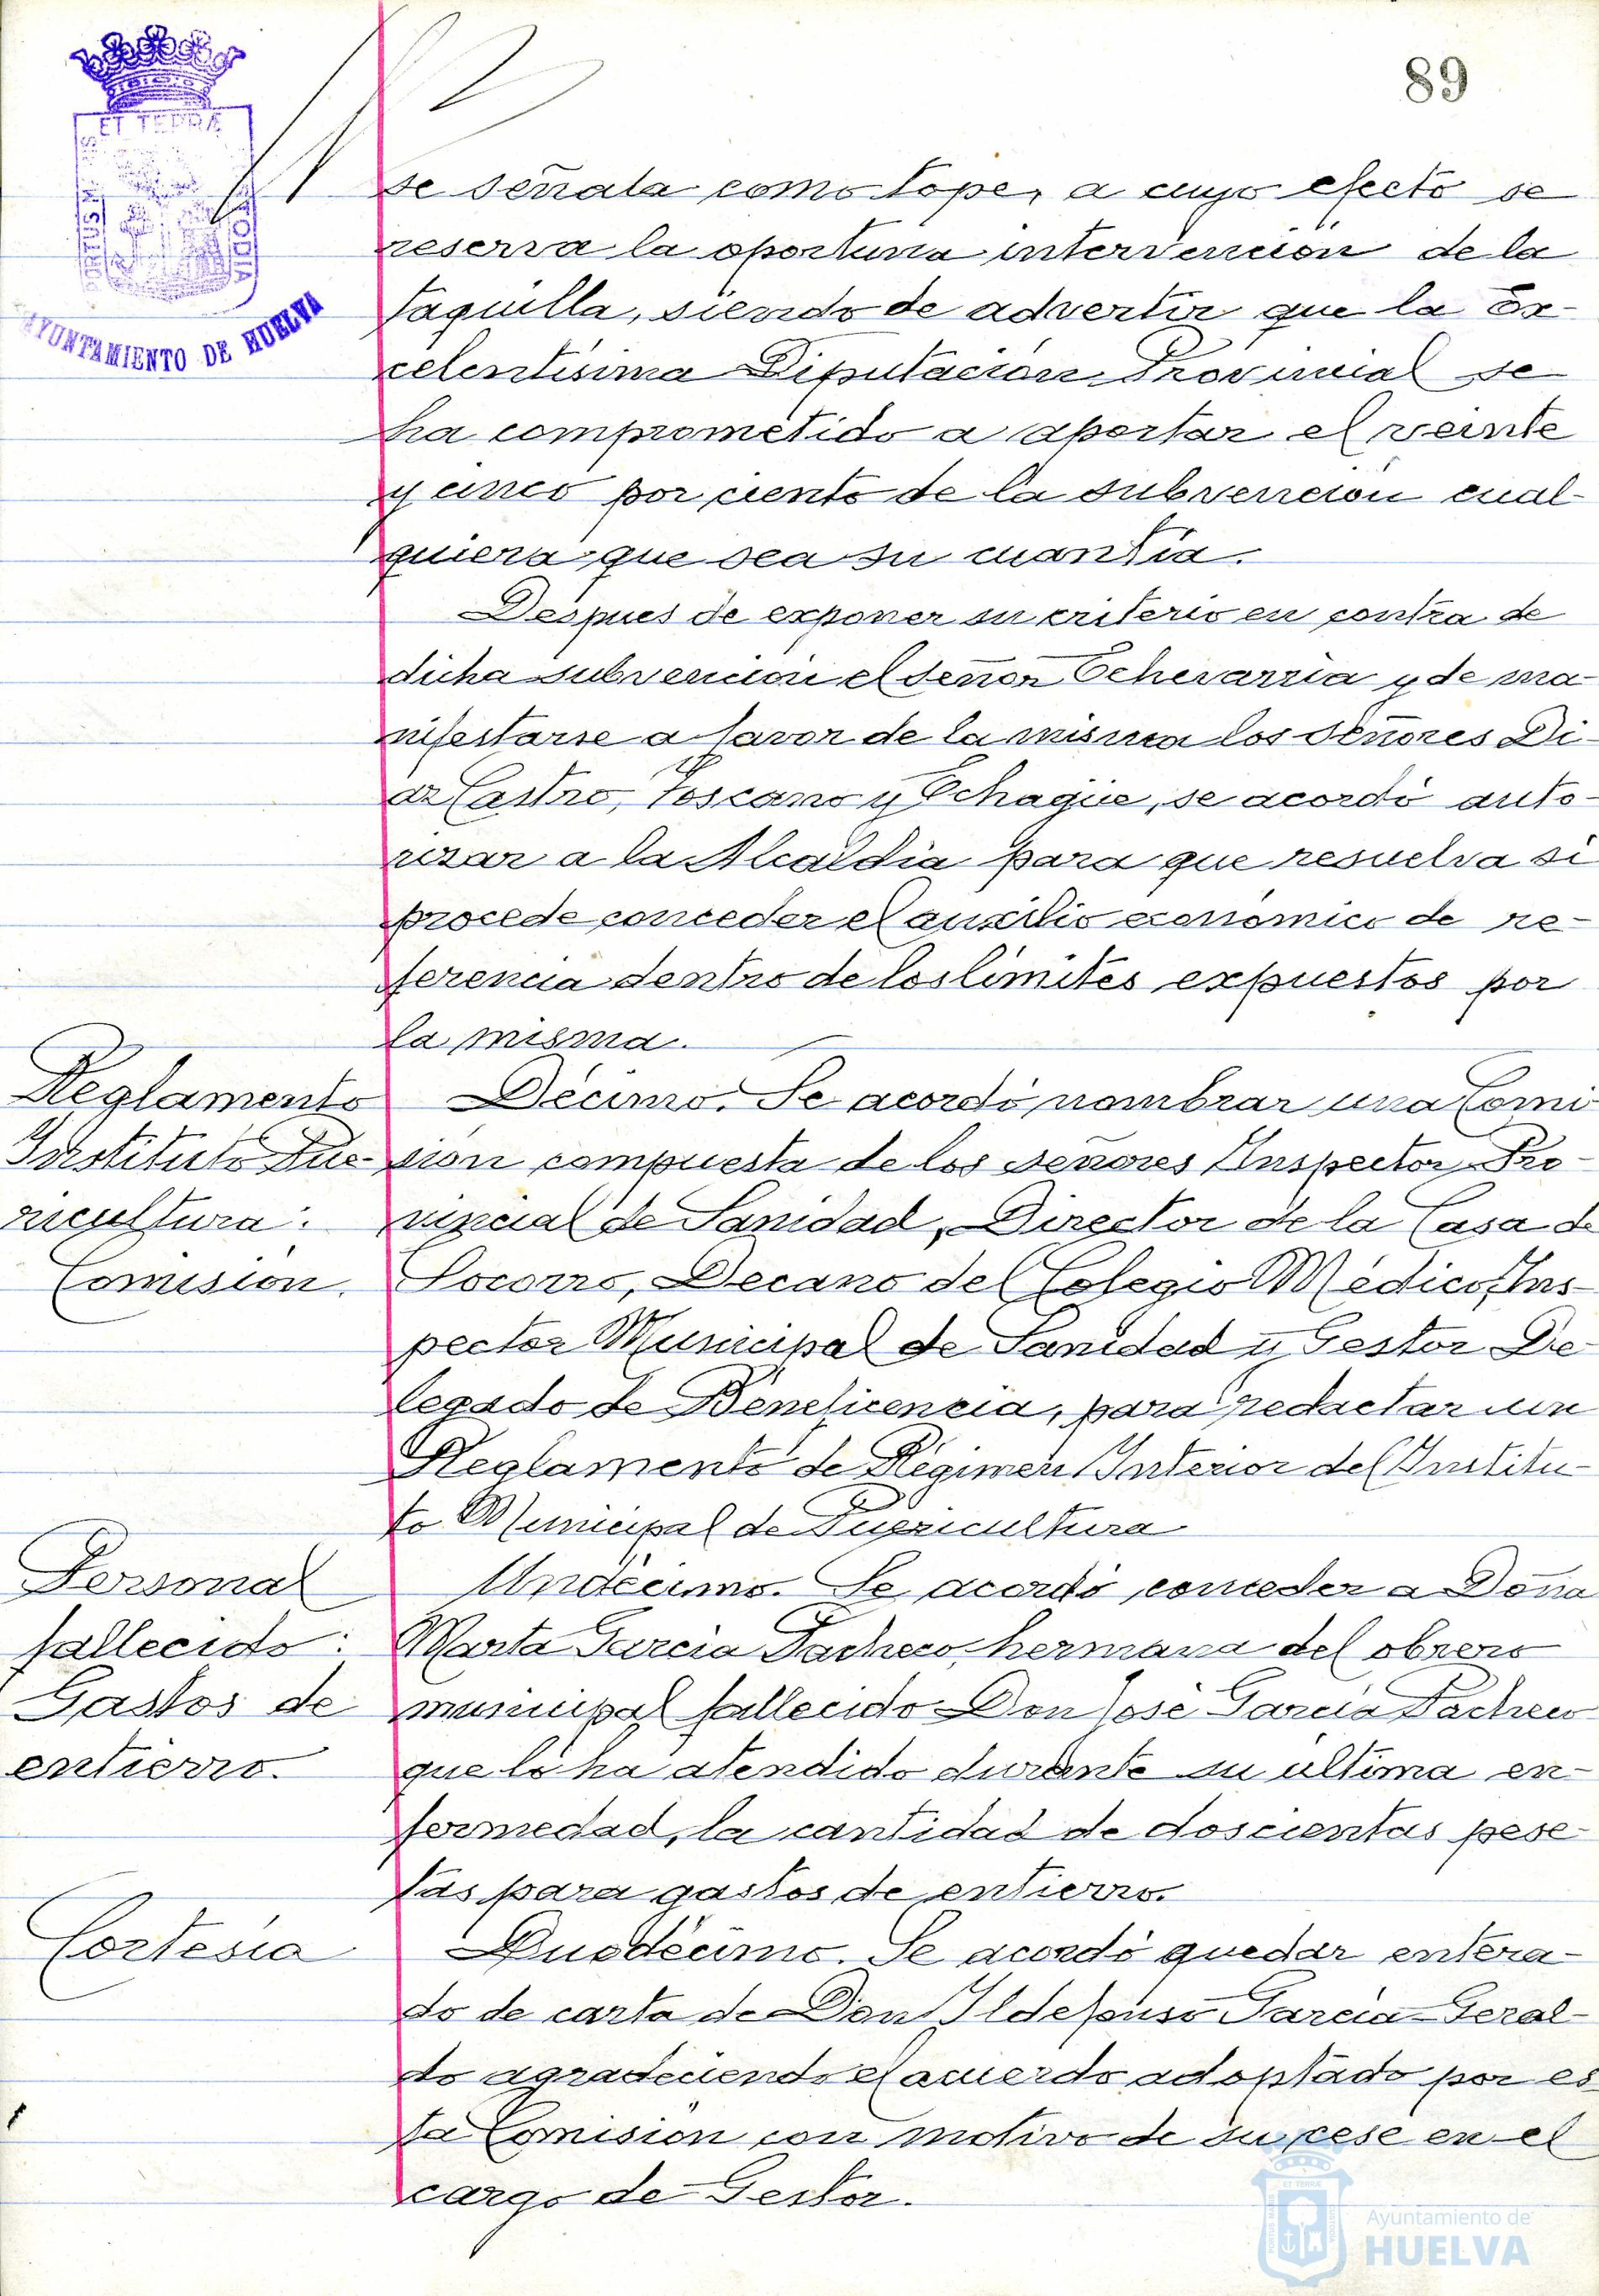 89
ET TERRA
AYUNTAMIENTO DE HUELVA
se señala como tope, a cuyo efecto se
reserva la oportuna intervención de la
taquilla, siendo de advertir que la Ex-
celentísima Diputación Provincial se
ha comprometido a aportar el veinte
y cinco por ciento de la subvención cual-
quiera que sea su cuantía.
Despues de exponer su criterio en contra de
dicha subvencion el señor Echevarria y de ma-
nifestarse a favor de la misma los señores Di-
az Castro, Toscano y Echagüe, se acordó auto-
rizar a la Alcaldia para que resuelva si
procede conceder el auxilio económico de re-
ferencia dentro de los limites expuestos por
la misma.
Reglamento
Instituto Pue-
ricultura:
Comision.
Décimo. Se acordó nombrar una Comi
sión compuesta de los señores Inspector Pro-
vincial de Sanidad, Director de la Casa de
Socorro, Decano del Colegio Médico, Ins-
pector Municipal de Sanidad y Gestor De-
legado de Beneficencia, para redactar un
Reglamento de Régimen Interior del Institu-
to Municipal de Puericultura
Personal
fallecido:
Gastos de
entierro.
Undécimo. Se acordó conceder a Doña
Marta Garcia Pacheco, hermana del obrero
municipal fallecido Don José Garcia Pacheco
que lo ha atendido durante su última en-
fermedad, la cantidad de doscientas pese-
tas para gastos de entierro.
Cortesia
Duodécimo. Se acordó quedar entera-
do de carta de Don Ildefonso Garcia-Geral-
do agradeciendo el acuerdo adoptado por es-
ta Comision con motivo de su cese en el
cargo de Gestor.
Ayuntamiento de
HUELVA